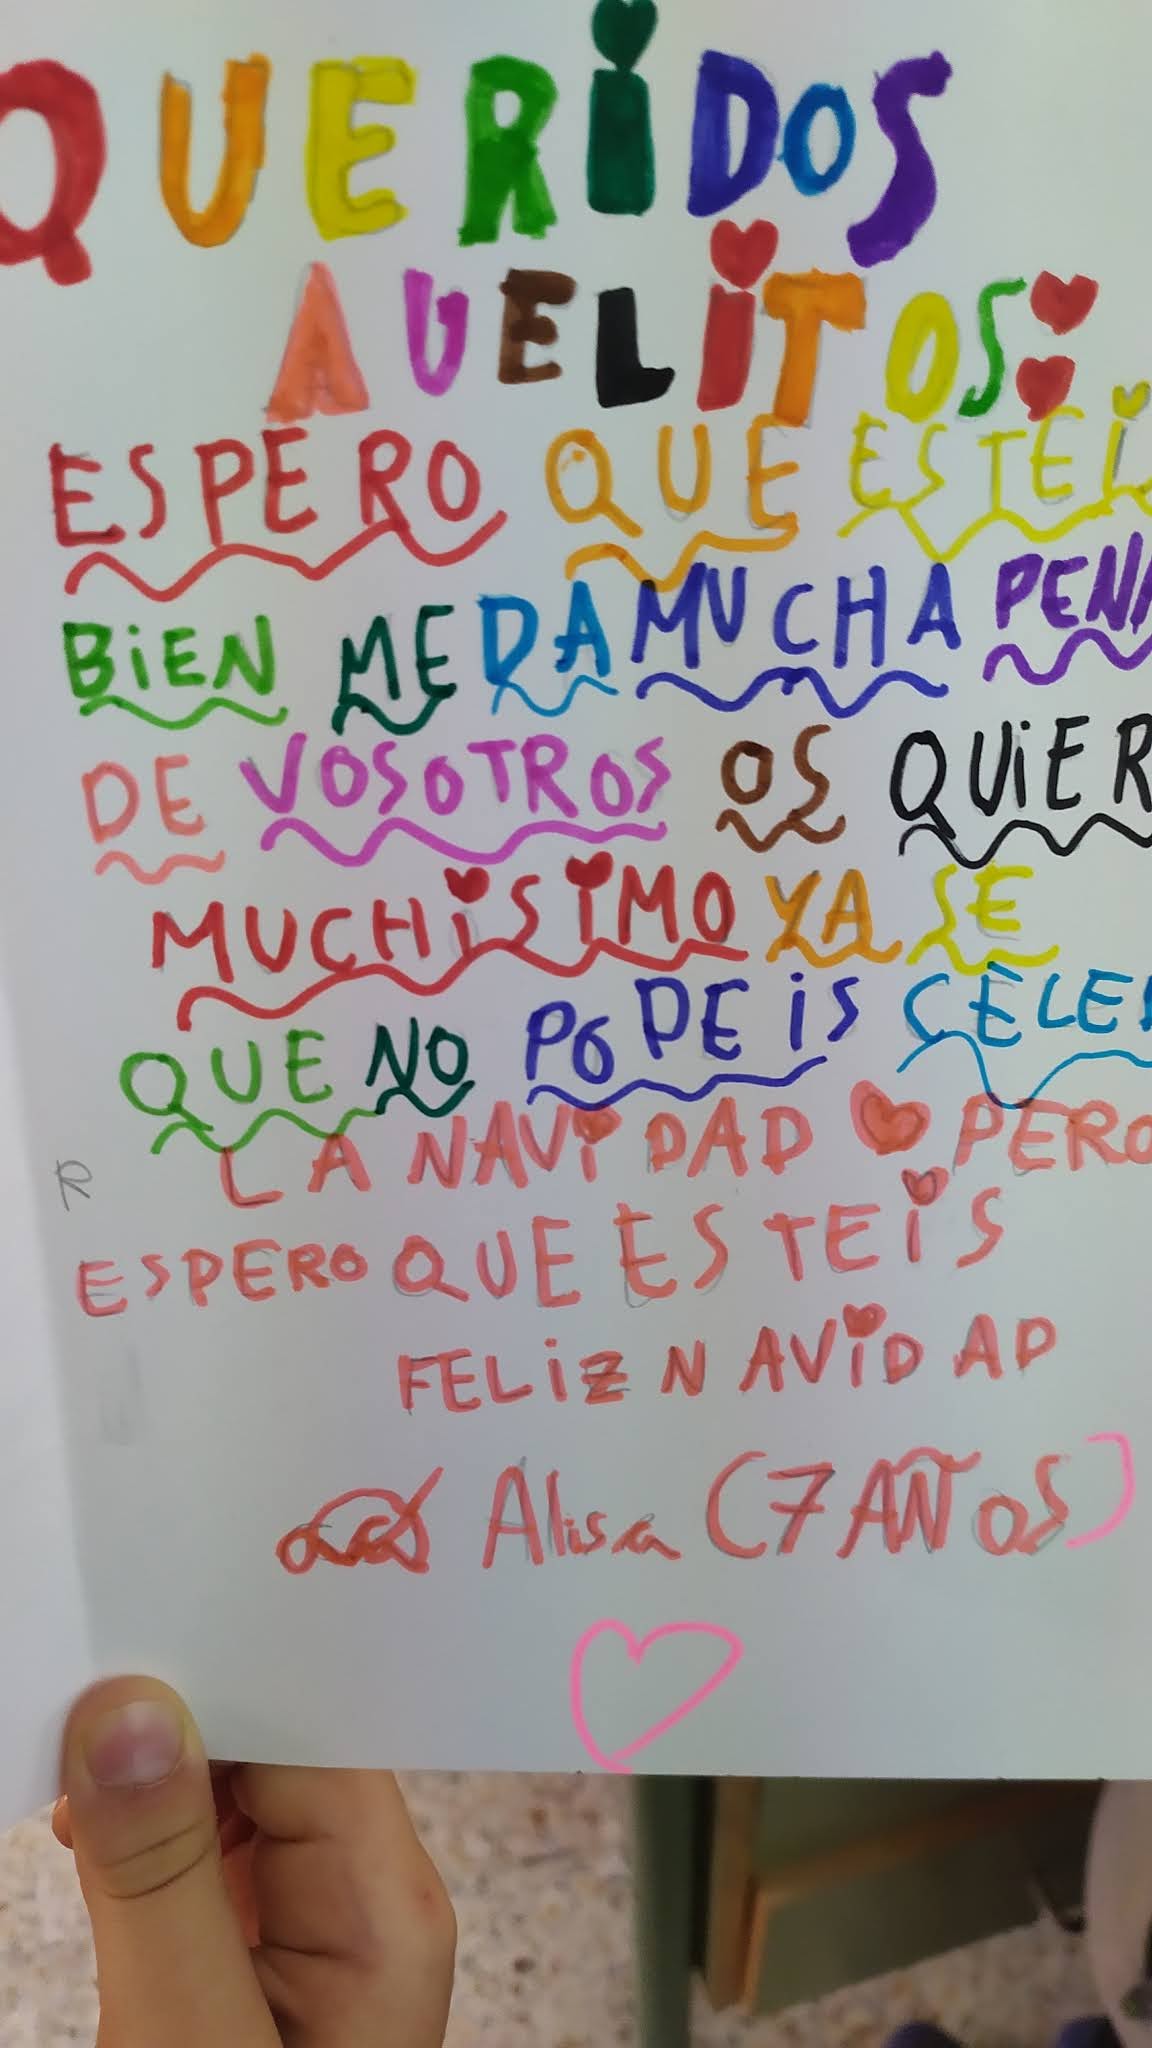 QUERIDOS
AUELITOS:
ESPERO QUE ESTEI
BiEN ME DA MUCHA PENA
DE VOSOTROS OS QUiER
MUCHiSiMO YA SE
QUE NO PODEiS CELEB
LA NAViDAD PERO
R
ESPERO QUE ESTEiS
FELiZ NAViDAD
Alisa (7 AÑOS)